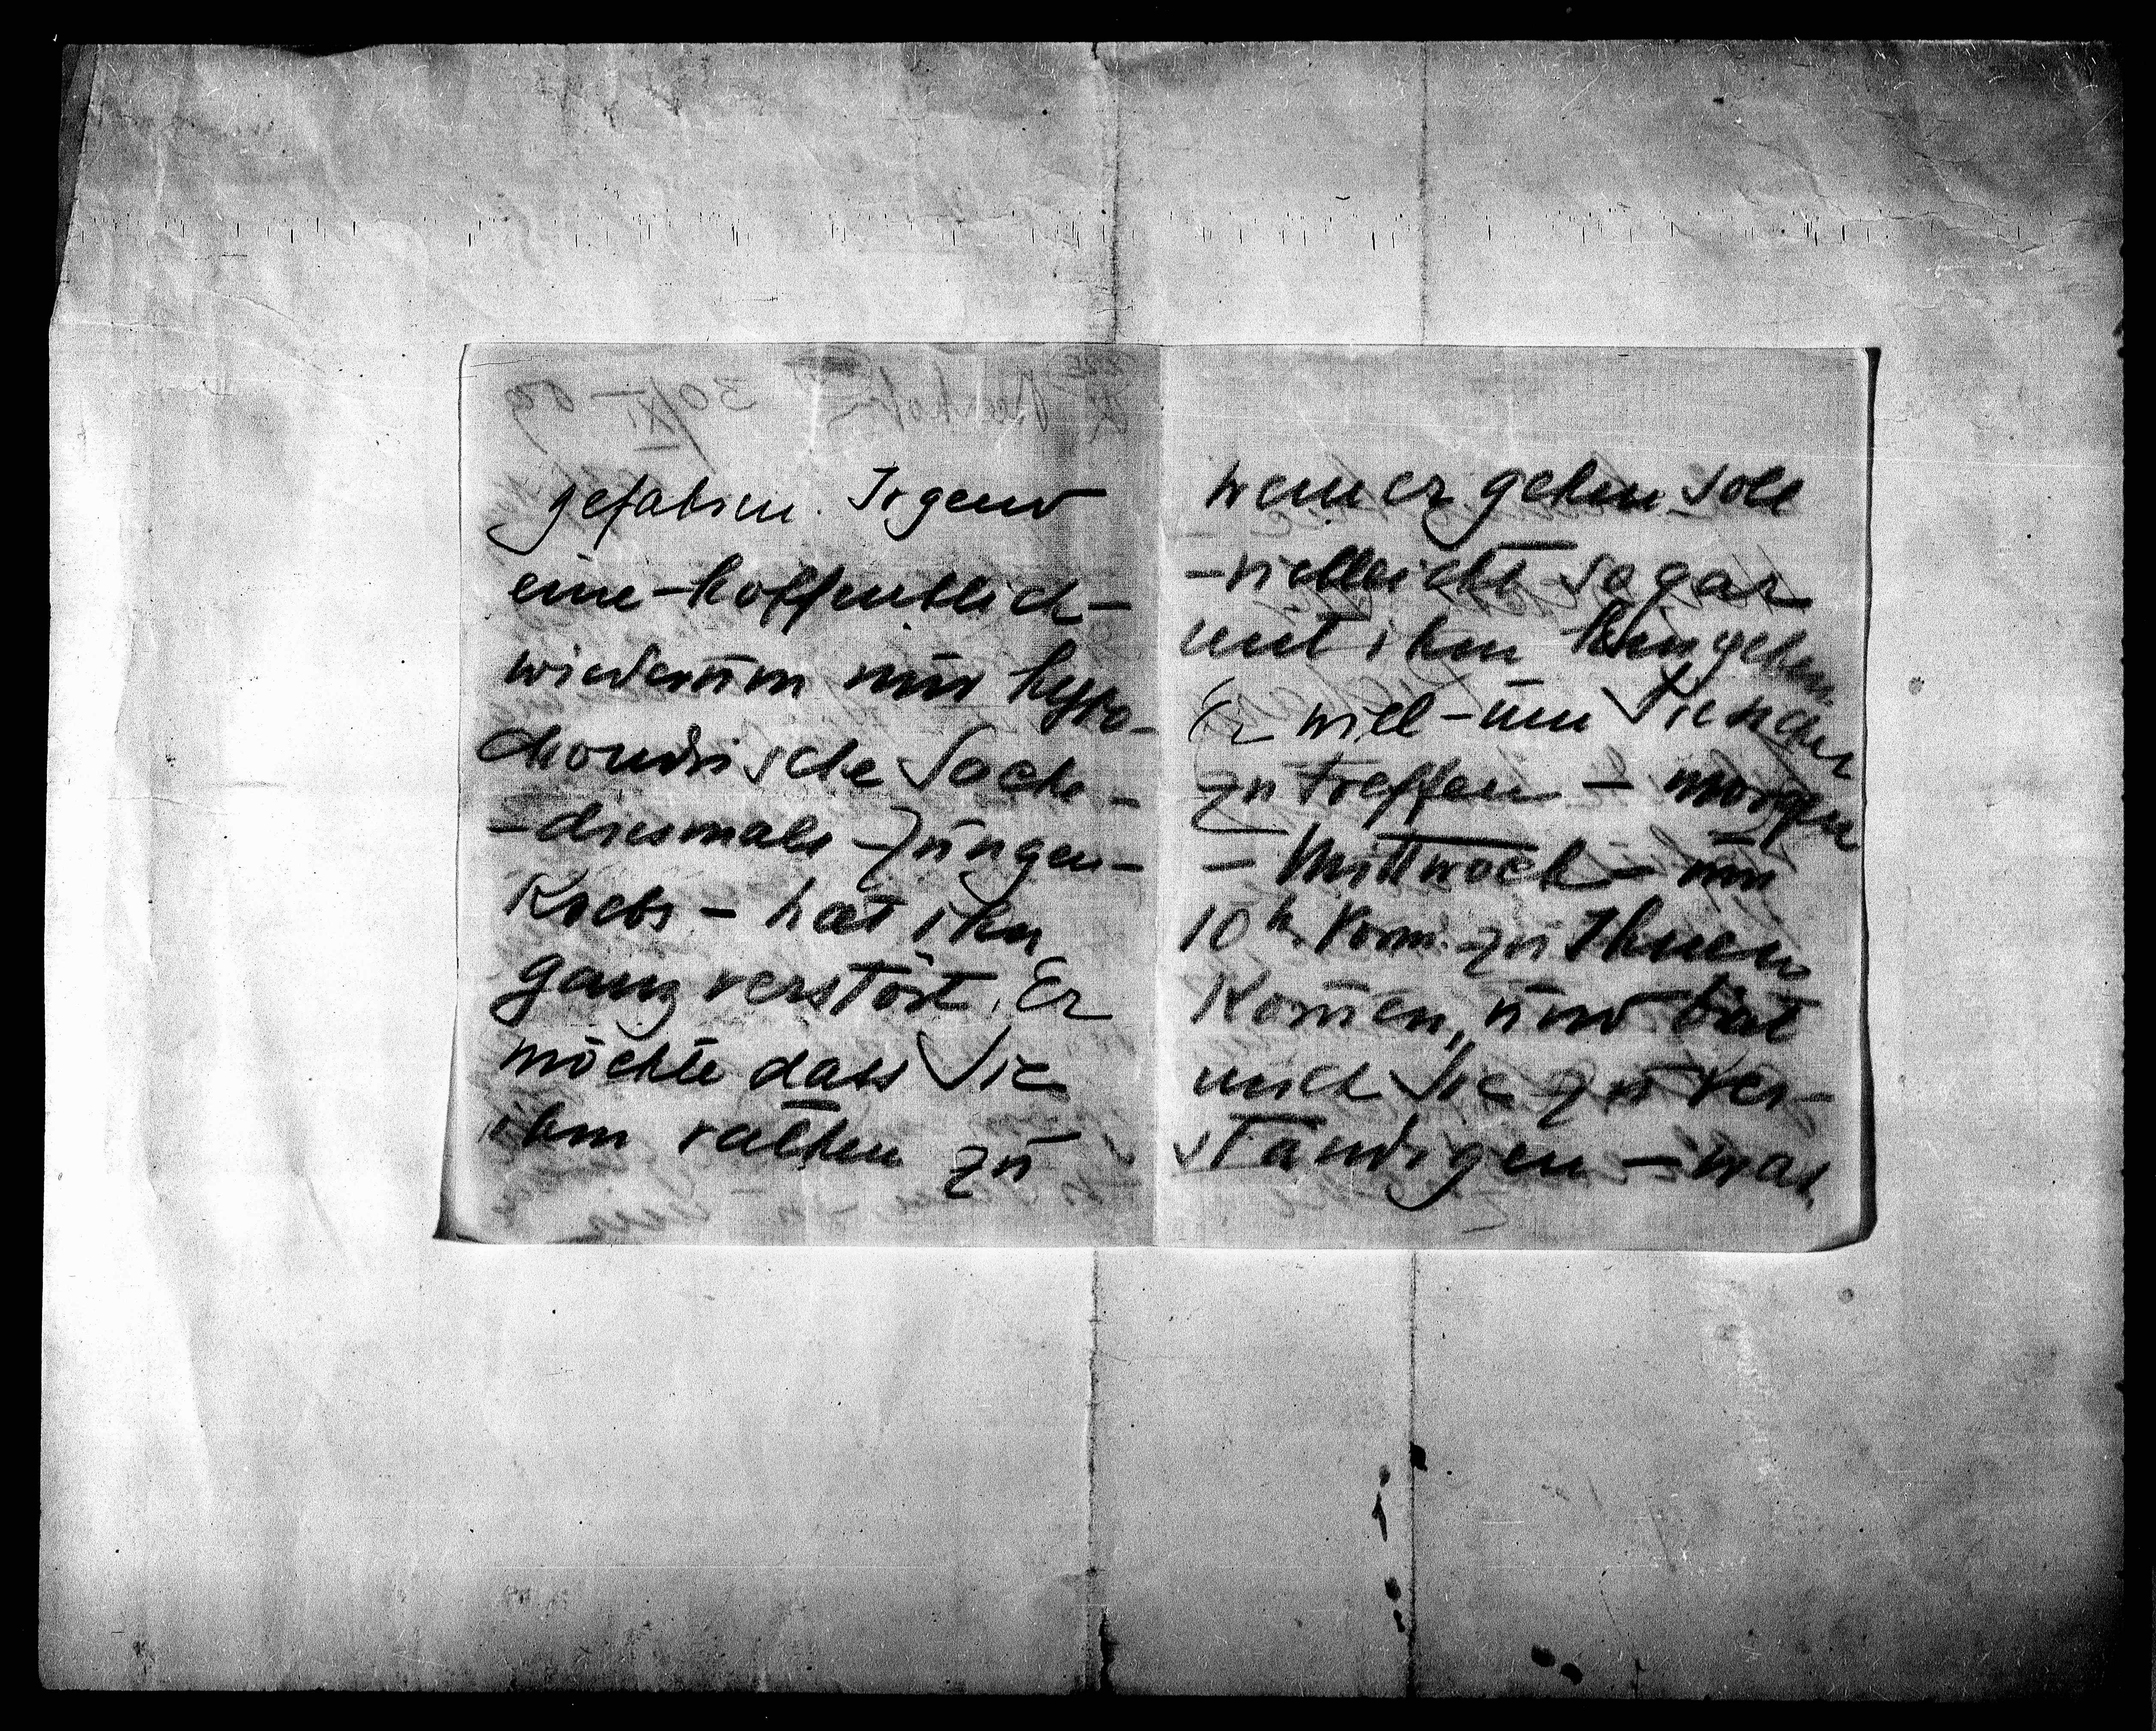 gefahren. Irgend
eine - hoffentlich -
wiederum nur hypo-
chondrische Sache -
- diesmals Zungen-
Krebs - hat ihn
ganz verstört. Er
möchte dass Sie
ihm rathen zu
wem er gehen soll
- vielleicht sogar
mit ihm hingehen.
Er will - um Sie sicher
zu treffen - morgen
- Mittwoch - um
10 h. Vorm. zu Ihnen
kom̄en, und bat
mich Sie zu ver-
ständigen - was
30/XI - 09